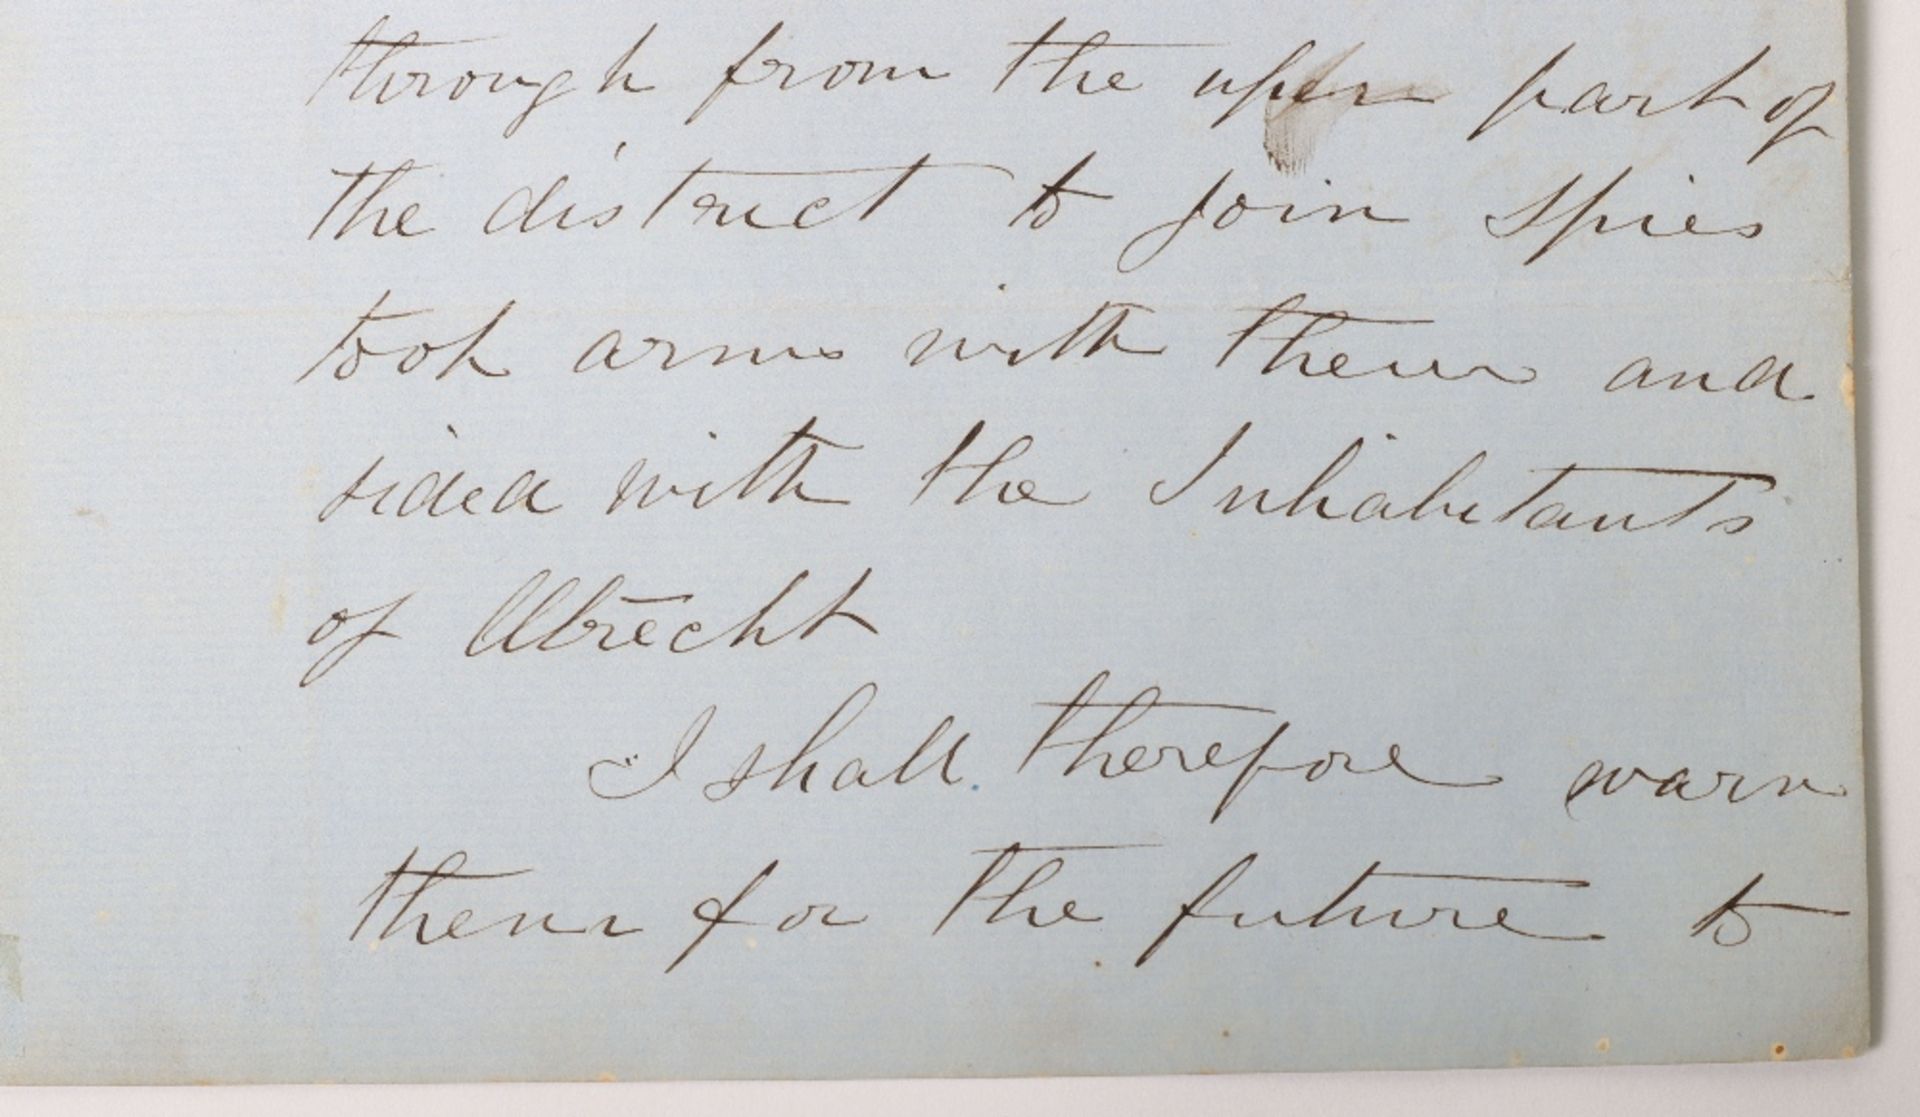 through from the upper part of
the district to join Spies
took arms with them and
sided with the Inhabitants
of Utrecht
I shall therefore warn
them for the future to